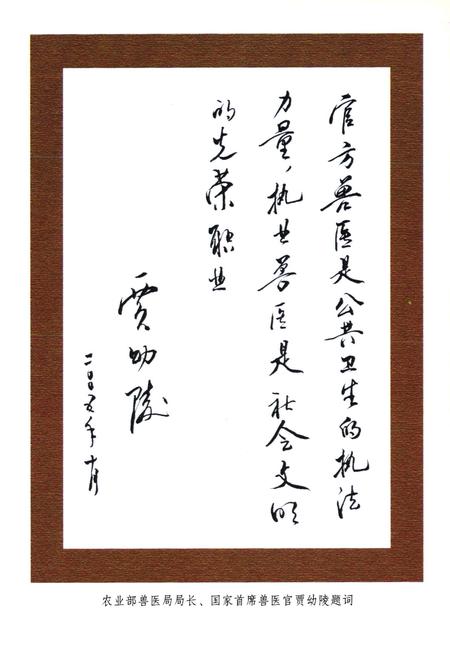 官方兽医是公共卫生的执法
力量,执业兽医是社会文明
的光荣职业
贾幼陵
二〇〇五年十月
农业部兽医局局长、国家首席兽医官贾幼陵题词